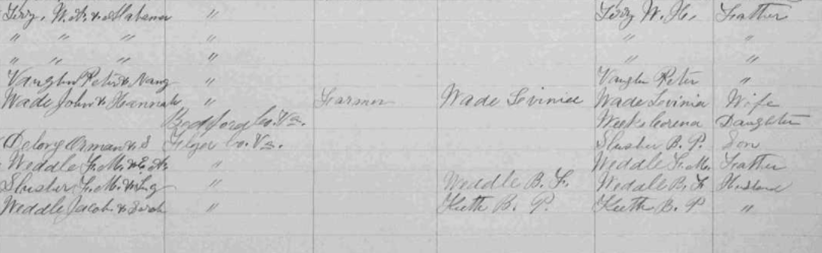 Terry, W. H. & Alabama " Terry W. H. Father
" " " " " "
" " " " " "
Vaughn Peter & Nancy " Vaughn Peter "
Wade John & Hannah " Farmer Wade Levinia Wade Levinia Wife
Bedford Co. Va. Corena Daughter
Orman & S Co. Va. Slusher B. P. Son
Weddle F. M. & E. A. " Weddle F. M. Father
Slusher F. M. & " Weddle B. F. Weddle B. F. Husband
Weddle Jacob & Sarah " Keith B. P. Keith B. P "